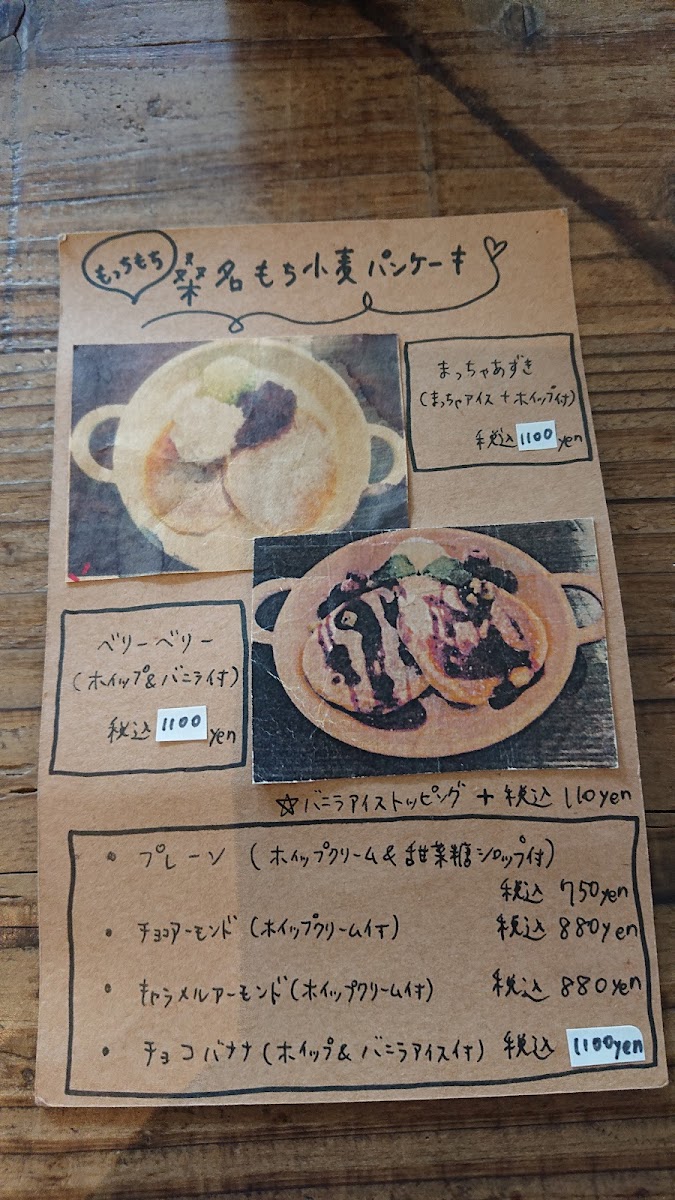 もっちもち
桑名もち小麦パンケーキ
まっちゃあずき
(まっちゃアイス+ホイップ付)
税込 1100 yen
ベリーベリー
(ホイップ&バニラ付)
税込 1100 yen
☆バニラアイストッピング + 税込 110yen
• プレーン (ホイップクリーム&甜菜糖シロップ付)
税込 750yen
• チョコアーモンド(ホイップクリーム付) 税込 880yen
• キャラメルアーモンド(ホイップクリーム付) 税込 880yen
• チョコバナナ(ホイップ&バニラアイス付) 税込 1100yen